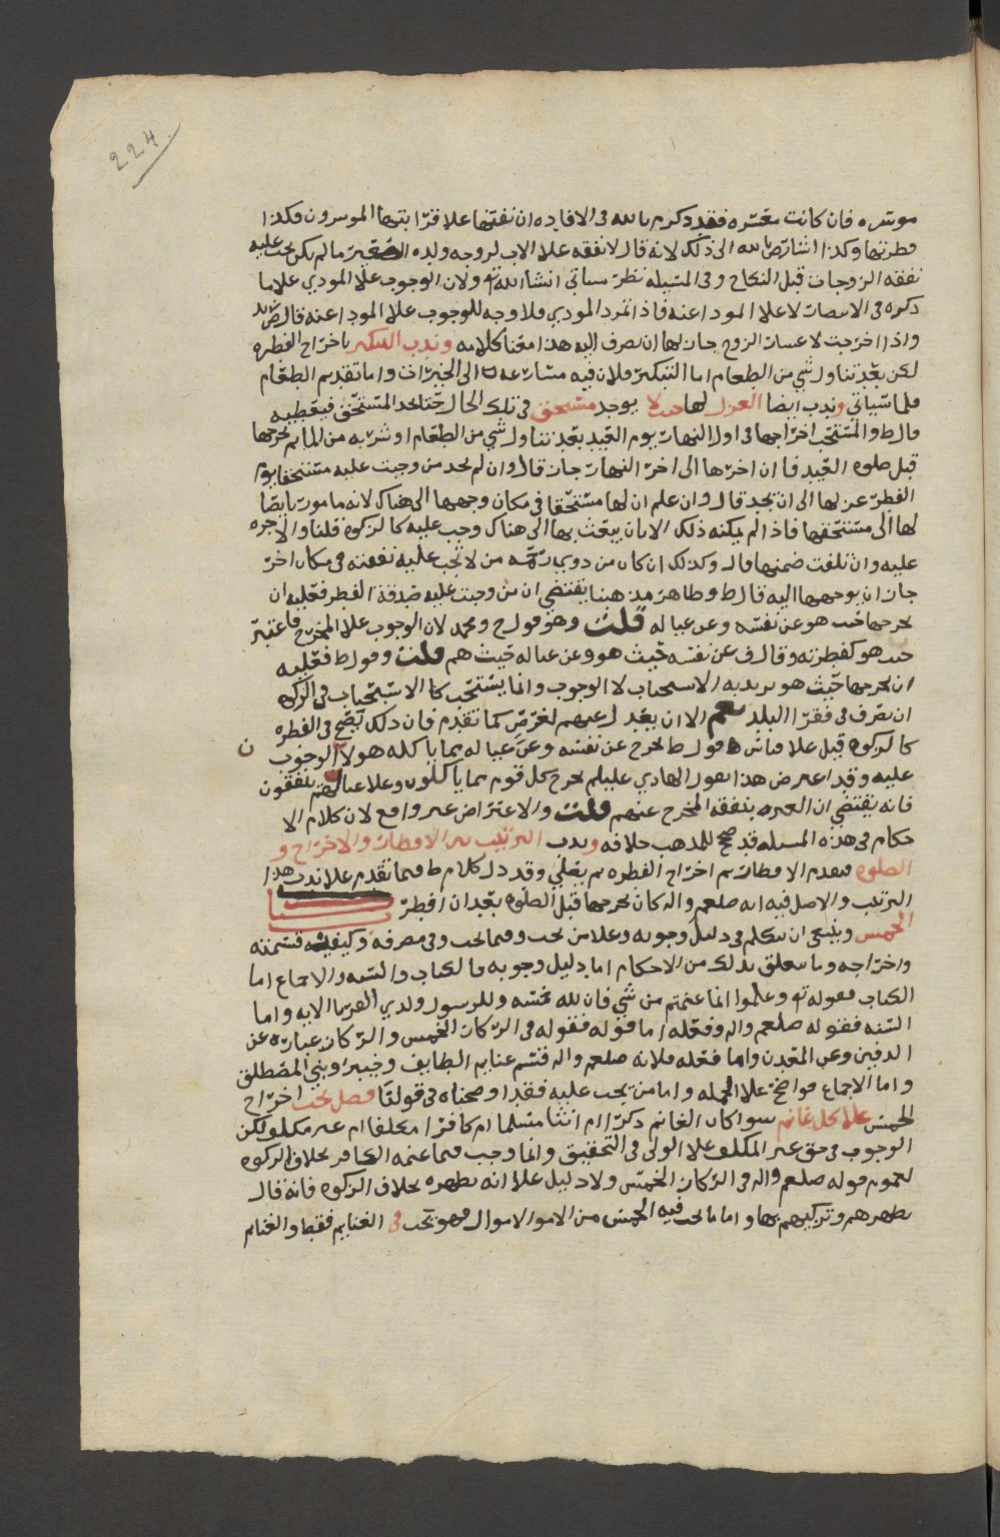 224
موسره فان كانت معسره فقد ذكر م بالله في الافاده ان نفقتها علا قرابتها الموسرون فكذا
فطرتها وكذا اشار ض بالله الى ذلك لانه قال لا نفقه علا الاب لزوجه ولده الصغير مالم يكن تجب عليه
نفقه الزوجات قبل النكاح وفي المسيله نظر سياتي انشا الله تع ولان الوجوب علا المودي علا ما
ذكره في الانتصار لا علا المودا عنه فاذا تمرد المودي فلا وجه للوجوب علا المودا عنه قال ض زيد
واذا اخرجت لاعسار الزوج جاز لها ان يصرف اليه هذا معنا كلامه وندب التبكير باخراج الفطره
لكن بعد تناول شي من الطعام اما التبكير فلان فيه مسارعه الى الخيرات واما تقديم الطعام
فلما سياتي وندب ايضا العزل لها حيث لا يوجد مستحق في تلك الحال حتا يجد المستحق فيعطيه
قال ط والمستحب اخراجها في اول النهار يوم العيد بعد تناول شي من الطعام او شربه من الما ثم يخرجها
قبل صلوه العيد فا ان اخرها الى اخر النهار جاز قال وان لم يجد من وجبت عليه مستحقا يوم
الفطر عزلها الى ان يجد قال وان علم ان لها مستحقا في مكان وجهها الى هناك لانه مامور بايصا
لها الى مستحقها فاذا لم يمكنه ذلك الا بان يبعث بها الى هناك وجب عليه كالزكوه قلنا والاجره
عليه وان تلفت ضمنها قال وكذلك ان كان من ذوي رحمه من لا تجب عليه نفقته في مكان اخر
جاز ان يوجهها اليه قال ط وظاهر مذهبنا يقتضي ان من وجبت عليه صدقة الفطر فعليه ان
يخرجها حيث هو عن نفسه وعن عياله قلت وهو قول ح ومحمد لان الوجوب علا المخرج فاعتبر
حيث هو كفطرته وقال ف عن نفسه حيث هو وعن عياله حيث هم قلت وقول ط فعليه
ان يخرجها حيث هو يريد به الاستحباب لا الوجوب وانما يستحب كالاستحباب في الزكوه
ان تصرف في فقرا البلد نعم الا ان يعدل عنهم لغرض كما تقدم فان ذلك يصح في الفطره
كالزكوه قبل علا قياس قول ط يخرج عن نفسه وعن عياله بما ياكله هو لان الوجوب
عليه وقد اعترض هذا بقول الهادي عليلم يخرج كل قوم مما ياكلون وعلا عيالهم ينفقون
فانه يقتضي ان العبره بنفقه المخرج عنهم قلت والاعتراض غير واقع لان كلام الا
حكام في هذه المسله قد صح للمذهب خلافه وندب الترتيب بين الافطار والاخراج و
الصلوه فيقدم الافطار ثم اخراج الفطره ثم يصلي وقد دل كلام ط فيما تقدم علا ندب هذا
الترتيب والاصل فيه انه صلعم واله كان يخرجها قبل الصلوه بعد ان افطر
الخمس وينبغي ان نتكلم في دليل وجوبه وعلا من يجب وفيما يجب وفي مصرفه وكيفيه قسمته
واخراجه وما يتعلق بذلك من الاحكام اما دليل وجوبه فالكتاب والسنه والاجماع اما
الكتاب فقوله تع وعلموا انما غنمتم من شي فان لله خمسه وللرسول ولذي القربا الايه واما
السنه فقوله صلعم واله وفعله اما قوله فقوله في الركاز الخمس والركاز عباره عن
الدفين وعن المعدن واما فعله فلانه صلعم واله قسم غنايم الطايف وخيبر وبني المصطلق
واما الاجماع فواضح علا الجمله واما من يجب عليه فقد اوضحناه في قولنا فصل يجب اخراج
الخمس علا كل غانم سوا كان الغانم ذكرا ام انثا مسلما ام كافرا مكلفا ام غير مكلف لكن
الوجوب في حق غير المكلف علا الولي في التحقيق وانما وجب فيما غنمه الكافر بخلاف الزكوه
لعموم قوله صلعم واله في الركاز الخمس ولا دليل علا انه يطهره بخلاف الزكوه فانه قال
تطهرهم وتزكيهم بها واما ما يجب فيه الخمس من الامو الاموال فهو تجب في الغنايم فقط والغنايم